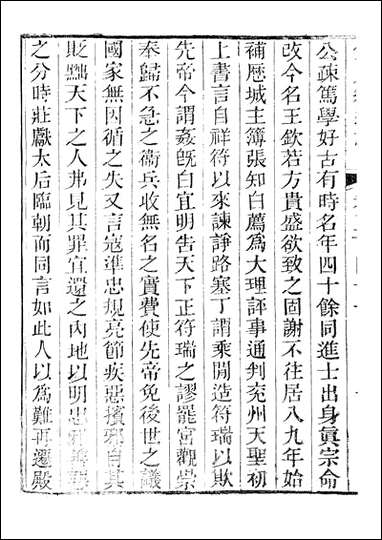 公疎篤學好古有時名年四十餘同進士出身眞宗命
改今名王欽若方貴盛欲致之固謝不往居八九年始
補歷城主簿張知白薦爲大理評事通判兖州天聖初
上書言自祥符以來諫諍路塞丁謂乘閒造符瑞以欺
先帝今謂姦旣白宜明告天下正符瑞之謬罷宮觀崇
奉歸不急之衞兵收無名之實費使先帝免後世之議
國家無因循之失又言寇準忠規亮節疾惡擯邪自其
貶黜天下之人弗見其罪宜還之內地以明忠邪善惡
之分時莊獻太后臨朝而同言如此人以爲難再遷殿